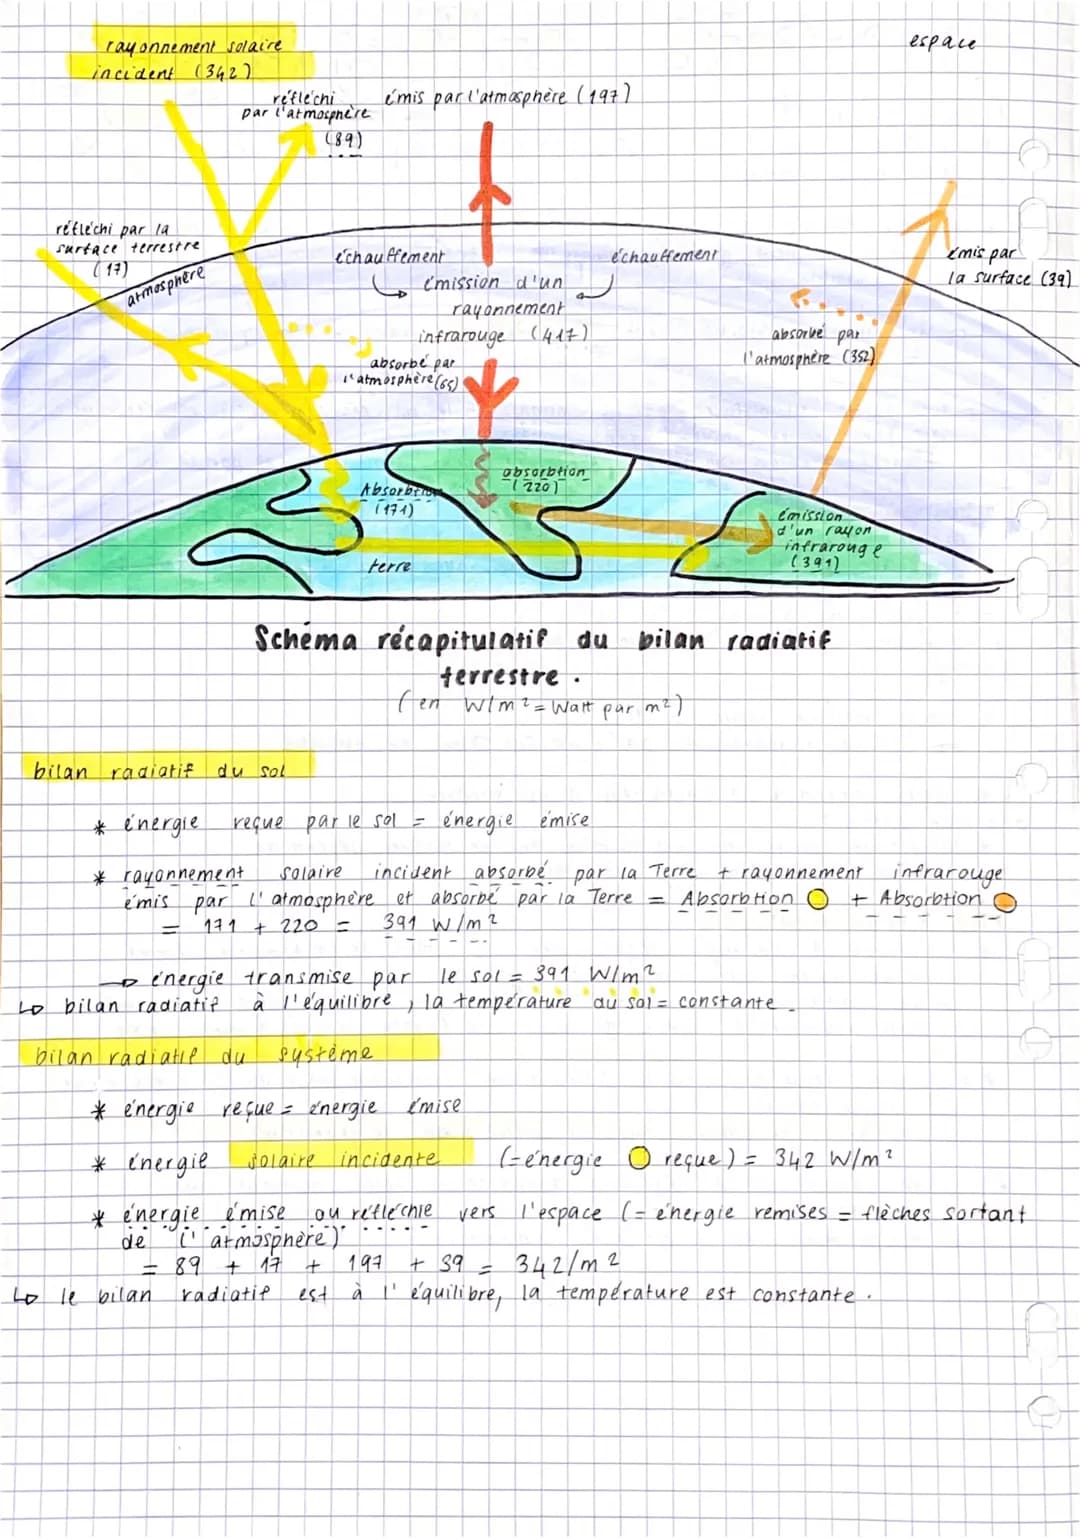 rayonnement solaire
incident (342)
espace
réfléchi
par l'atmosphère
(89)
émis par l'atmosphère (197)
réfléchi par la
surface terrestre
(17)
atmosphère
échauffement
échauffement
émission d'un
rayonnement
infrarouge (417)
émis par
la surface (39)
absorbé par
l'atmosphère (352)
absorbé par
l'atmosphère (65)
Absorbtion
(171)
absorbtion
(220)
émission
d'un rayon
infrarouge
(391)
terre
Schéma récapitulatif du bilan radiatif
terrestre.
(en W/m² = Watt par m²)
bilan radiatif du sol
* énergie reçue par le sol = énergie émise
* rayonnement solaire incident absorbé par la Terre + rayonnement infrarouge
émis par l'atmosphère et absorbé par la Terre = Absorbtion + Absorbtion
= 171 + 220 = 391 W/m²
→ énergie transmise par le sol = 391 W/m²
↳ bilan radiatif à l'équilibre, la température du sol = constante.
bilan radiatif du système
* énergie reçue = énergie émise
* énergie solaire incidente (=énergie reçue) = 342 W/m²
* énergie émise ou réfléchie vers l'espace (= énergie remises = flèches sortant
de l'atmosphère)
= 89 + 17 + 197 + 39 = 342/m²
↳ le bilan radiatif est à l'équilibre, la température est constante.